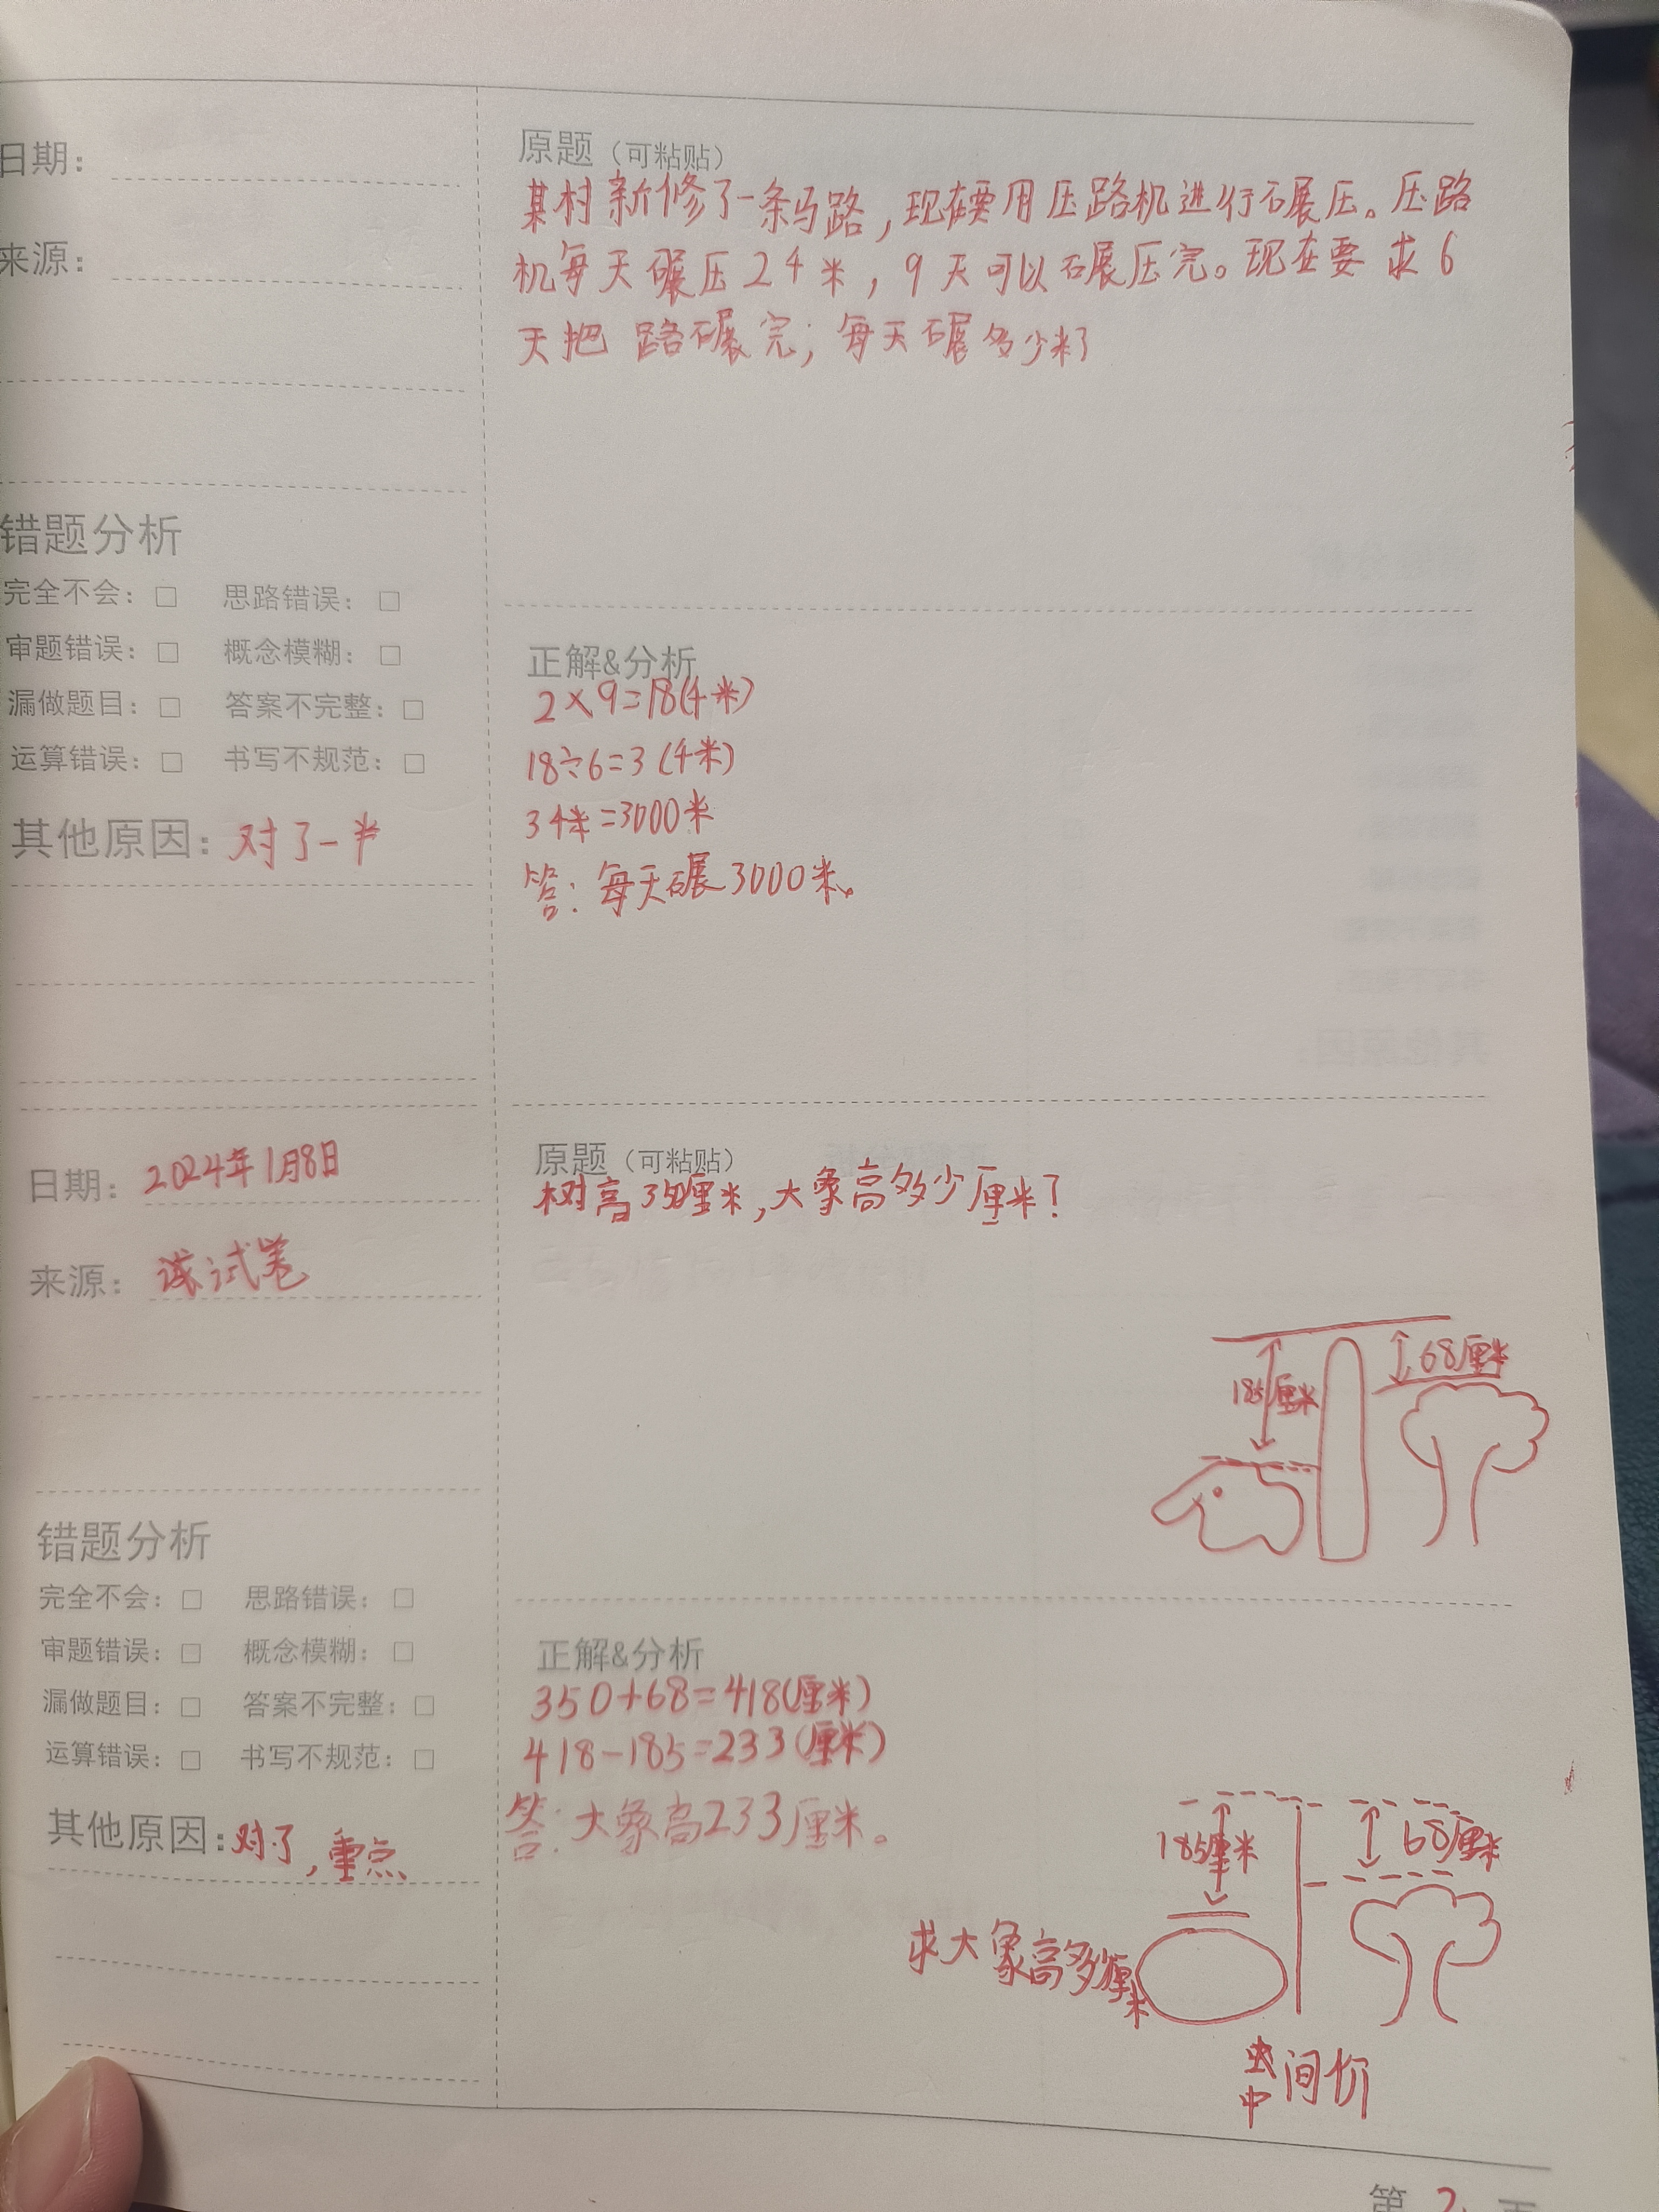 日期：
来源：
原题（可粘贴）
某村新修了一条马路，现在要用压路机进行碾压。压路
机每天碾压2千米，9天可以碾压完。现在要求6
天把路碾完；每天碾多少米？
错题分析
完全不会：□ 思路错误：□
审题错误：□ 概念模糊：□
漏做题目：□ 答案不完整：□
运算错误：□ 书写不规范：□
其他原因：对了一半
正解&分析
2×9=18(千米)
18÷6=3(千米)
3千米=3000米
答：每天碾3000米。
日期：2024年1月8日
来源：试卷
原题（可粘贴）
树高350厘米，大象高多少厘米？
185厘米
68厘米
错题分析
完全不会：□ 思路错误：□
审题错误：□ 概念模糊：□
漏做题目：□ 答案不完整：□
运算错误：□ 书写不规范：□
其他原因：对了，重点
正解&分析
350+68=418(厘米)
418-185=233(厘米)
答：大象高233厘米。
185厘米
68厘米
求大象高多少厘米
中间价
第2页